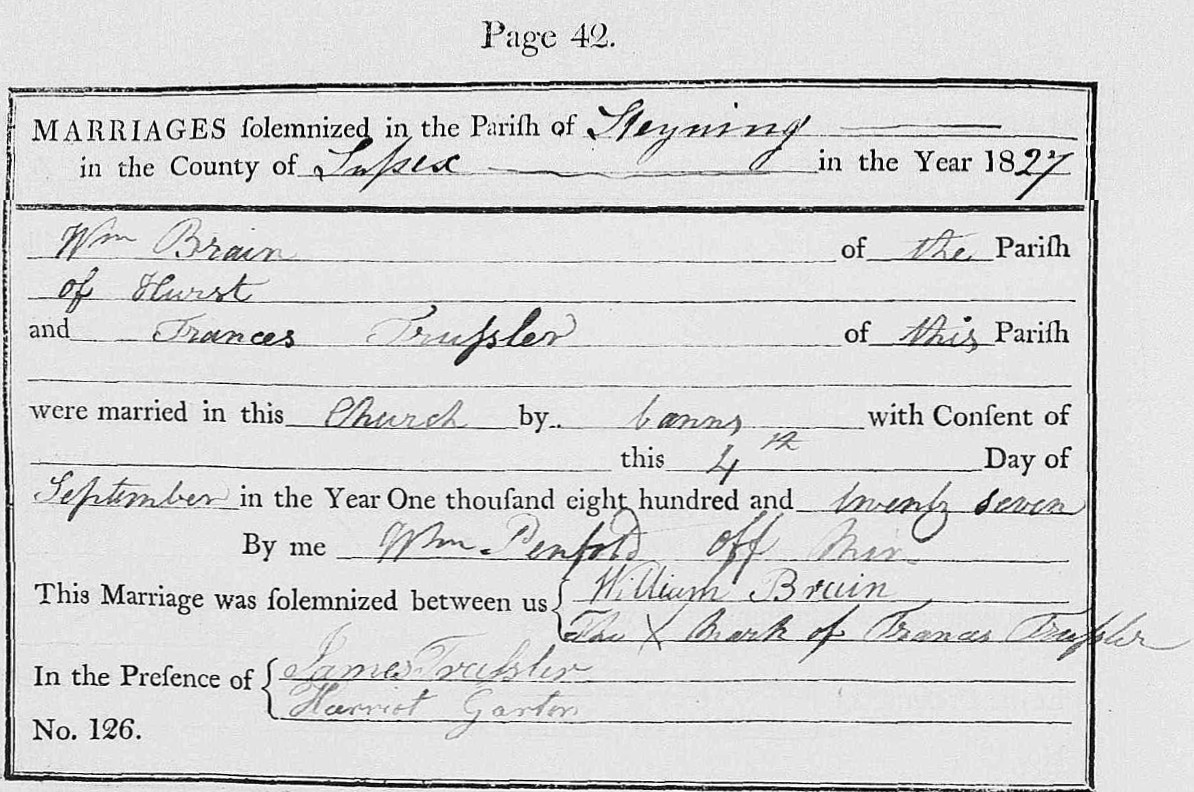 Page 42.
MARRIAGES ſolemnized in the Pariſh of Steyning
in the County of Suſsex in the Year 1827
Wm Brain of the Pariſh
of Hurst
and Frances Truſsler of this Pariſh
were married in this Church by banns with Conſent of
this 4th Day of
September in the Year One thouſand eight hundred and twenty seven
By me Wm Penfold Off Min
This Marriage was ſolemnized between us William Brain
The X Mark of Frances Truſsler
In the Preſence of James Truſsler
Harriot Garton
No. 126.